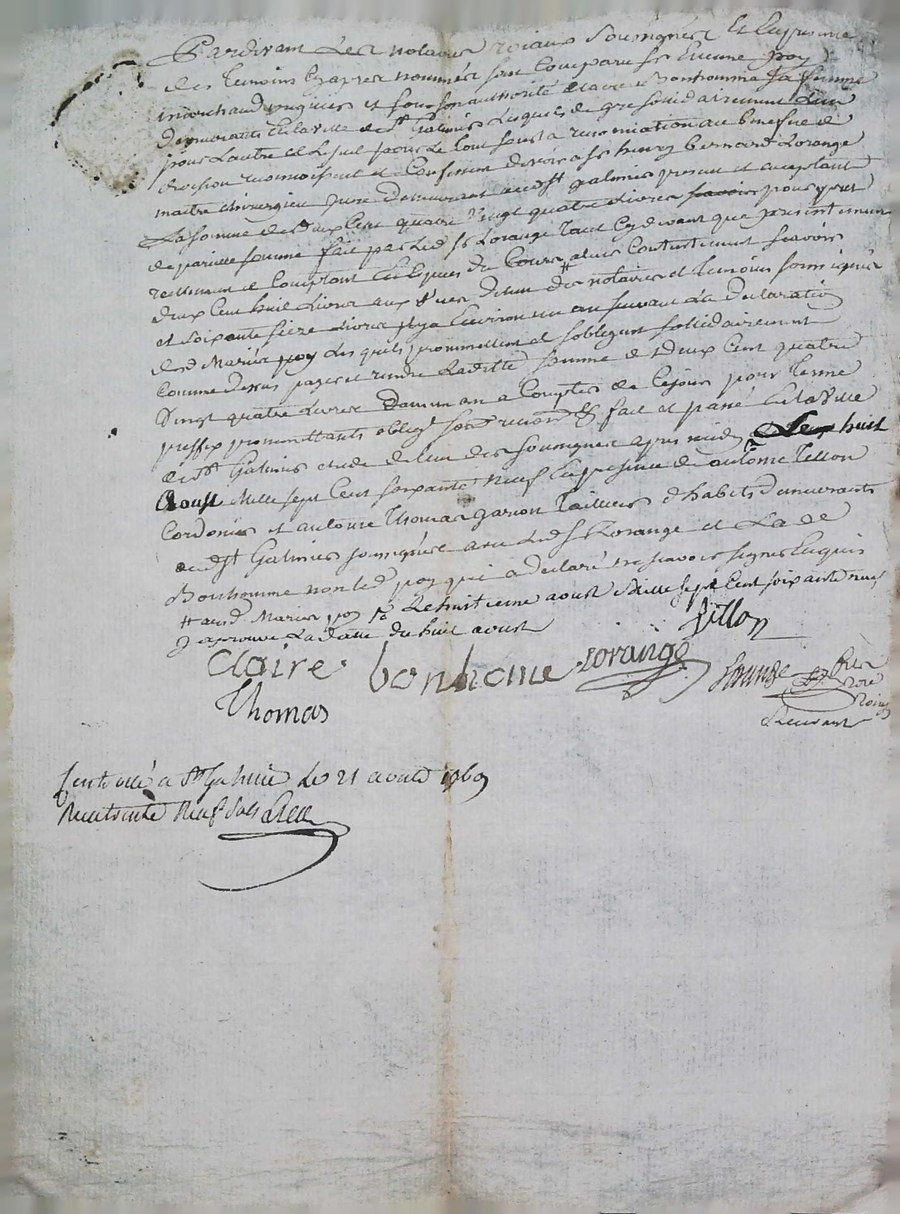 Pardevant Les notaires roiaux Soussignés Et En presence
des temoins Cy apres nommés sont Comparu Sr Etienne poy
marchand et sous son authorité Claire Bonhomme Sa femme
demeurants En la ville de St Galmier Lesquels de gre solidairement L'un
pour L'autre et Le seul pour Le tout sous La renonciation au benefice de
division reconnoissent et Confessent devoir a Sr henry Bernard Lorange
maitre chirurgien juré demeurant aud St galmier present et acceptant
La somme de deux Cent quatre vingt quatre Livres pour pret
de pareille somme fait par Led Sr Lorange tant Cy devant que presentement
reellement et Comptant En Especes du Cours a leur Contentement scavoir
deux Cent huit Livres aux vues de nous dts notaires et temoins soussignés
et soixante seize Livres il y a Environ un an suivant La declaration
desd Mariés poy Lesquels promettent et s'obligent solidairement
Comme dessus payer et rendre Laditte somme de deux Cent quatre
Vingt quatre Livres dans un an a Compter de Cejour pour terme
preffix promettants obligt soum renon &c fait et passé En la Ville
de St Galmier etude de L'un des soussignés apres midy Le huit
Aoust Mille sept Cent soixante neuf En presence de antoine
Cordonier et antoine Thomas garçon Tailleur d'habits demeurants
aud St Galmier soussignés avec Led Sr Lorange et La de
Bonhomme non led poy qui a declaré ne scavoir signer Enquis
Mariés poy Le huitieme aoust Mille sept Cent soixante neuf
J'aprouve La datte du huit aoust
claire bonhome Lorange
Thomas
Controllé a St Galmier le 21 aoust 1769
Recu trente Neuf sols